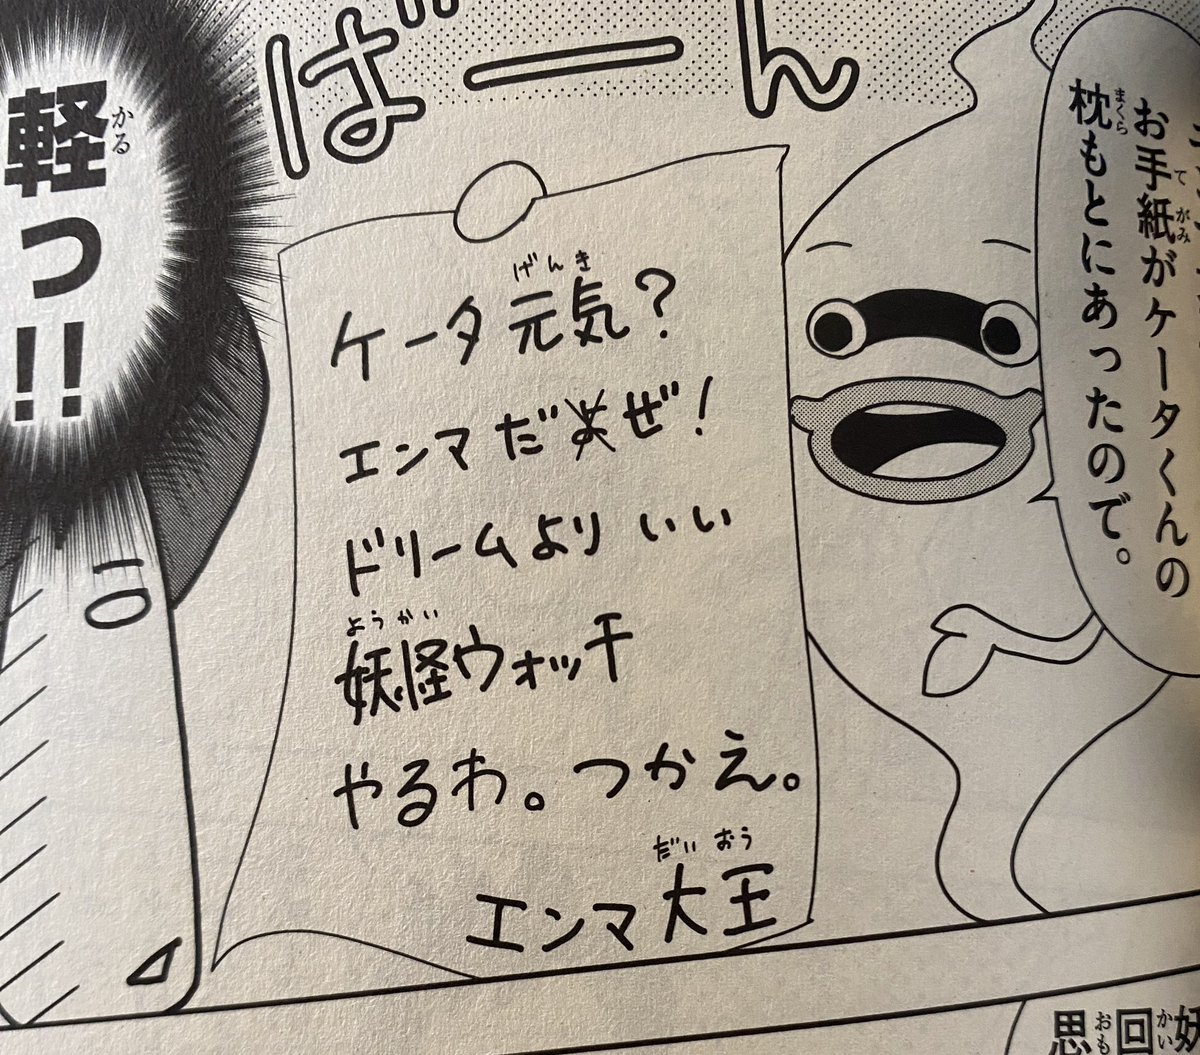 お手紙がケータくんの
枕もとにあったので。
ばーん
ケータ元気？
エンマだぜ！
ドリームよりいい
妖怪ウォッチ
やるわ。つかえ。
エンマ大王
軽っ!!